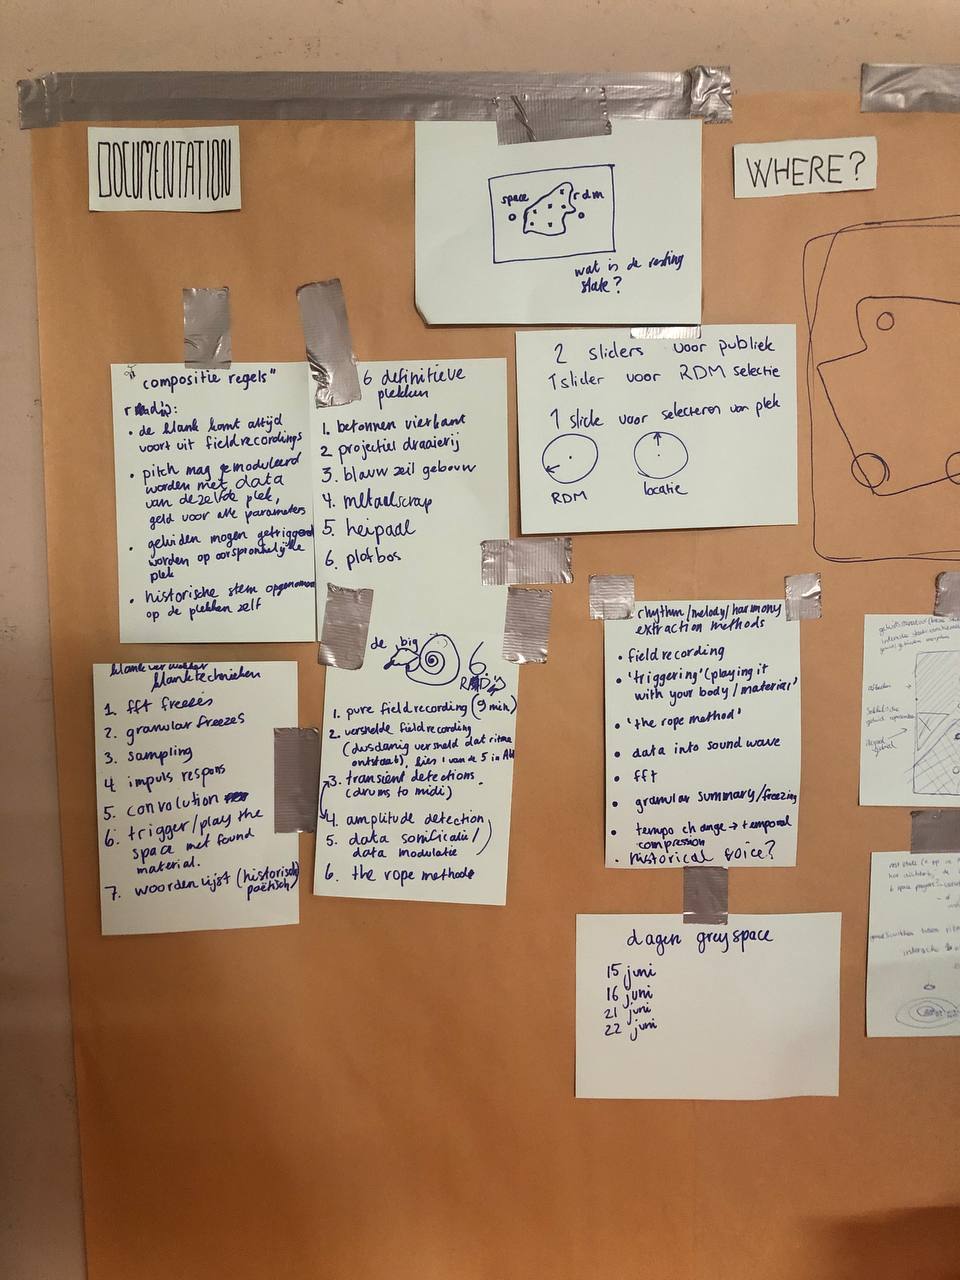 DOCUMENTATION
WHERE?
space
rdm
wat is de resting
state?
2 sliders voor publiek
1 slider voor RDM selectie
1 slide voor selecteren van plek
RDM
locatie
"compositie regels"
de klank komt altijd
voort uit fieldrecordings
pitch mag gemoduleerd
worden met data
van dezelfde plek,
geld voor alle parameters
geluiden mogen getriggerd
worden op oorspronkelijke
plek
historische stem opgenomen
op de plekken zelf
6 definitieve
plekken
1. betonnen vierkant
2 projectiel draaierij
3. blauw zeil gebouw
4. metaalscrap
5. heipaal
6. plofbos
klanktechnieken
1. fft freezes
2. granular freezes
3. sampling
4 impuls respons
5. convolution
6. trigger/play the
space met found
material.
7. woordenlijst (historisch
poëtisch)
de big
6
1. pure fieldrecording (9 min)
2. versnelde fieldrecording
(dusdanig versneld dat ritme
ontstaat), kies 1 van de 5 in
3. transient detections
(drums to midi)
4. amplitude detection
5. data sonificatie/
data modulatie
6. the rope methode
rhythm/melody/harmony
extraction methods
• fieldrecording
• 'triggering' (playing it
with your body/material'
• 'the rope method'
• data into sound wave
• fft
• granular summary/freezing
• tempo change → temporal
compression
• historical voice?
dagen greyspace
15 juni
16 juni
21 juni
22 juni